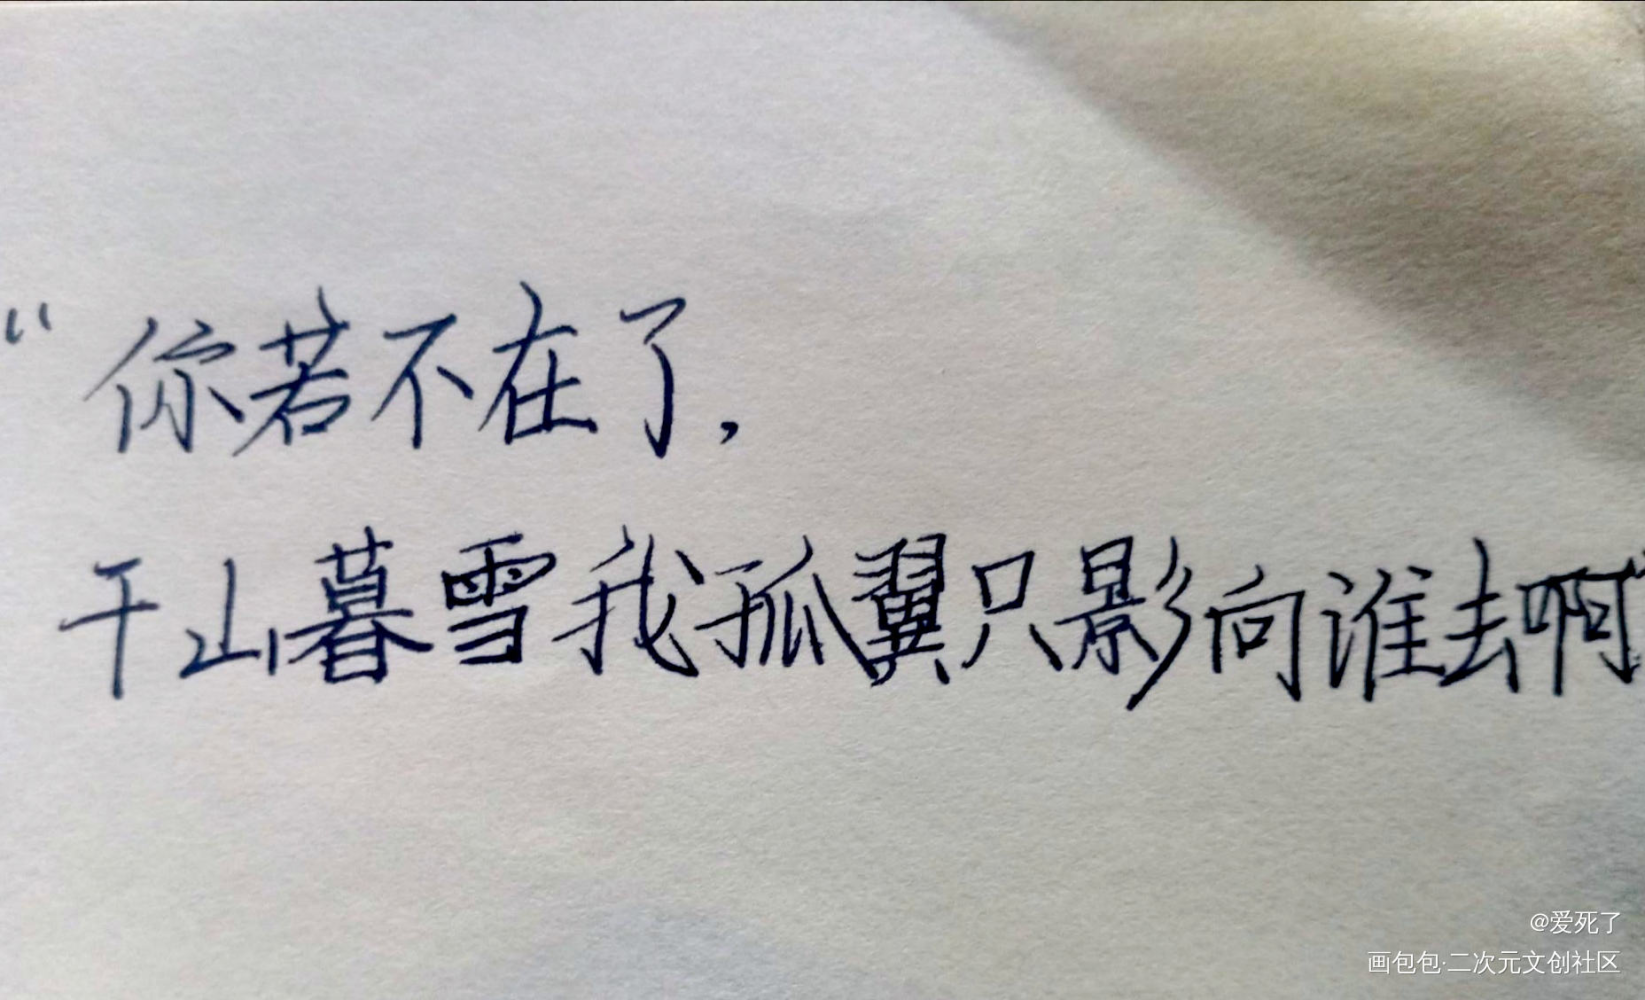 “你若不在了，
千山暮雪我孤翼只影向谁去啊”
@爱死了
画包包·二次元文创社区